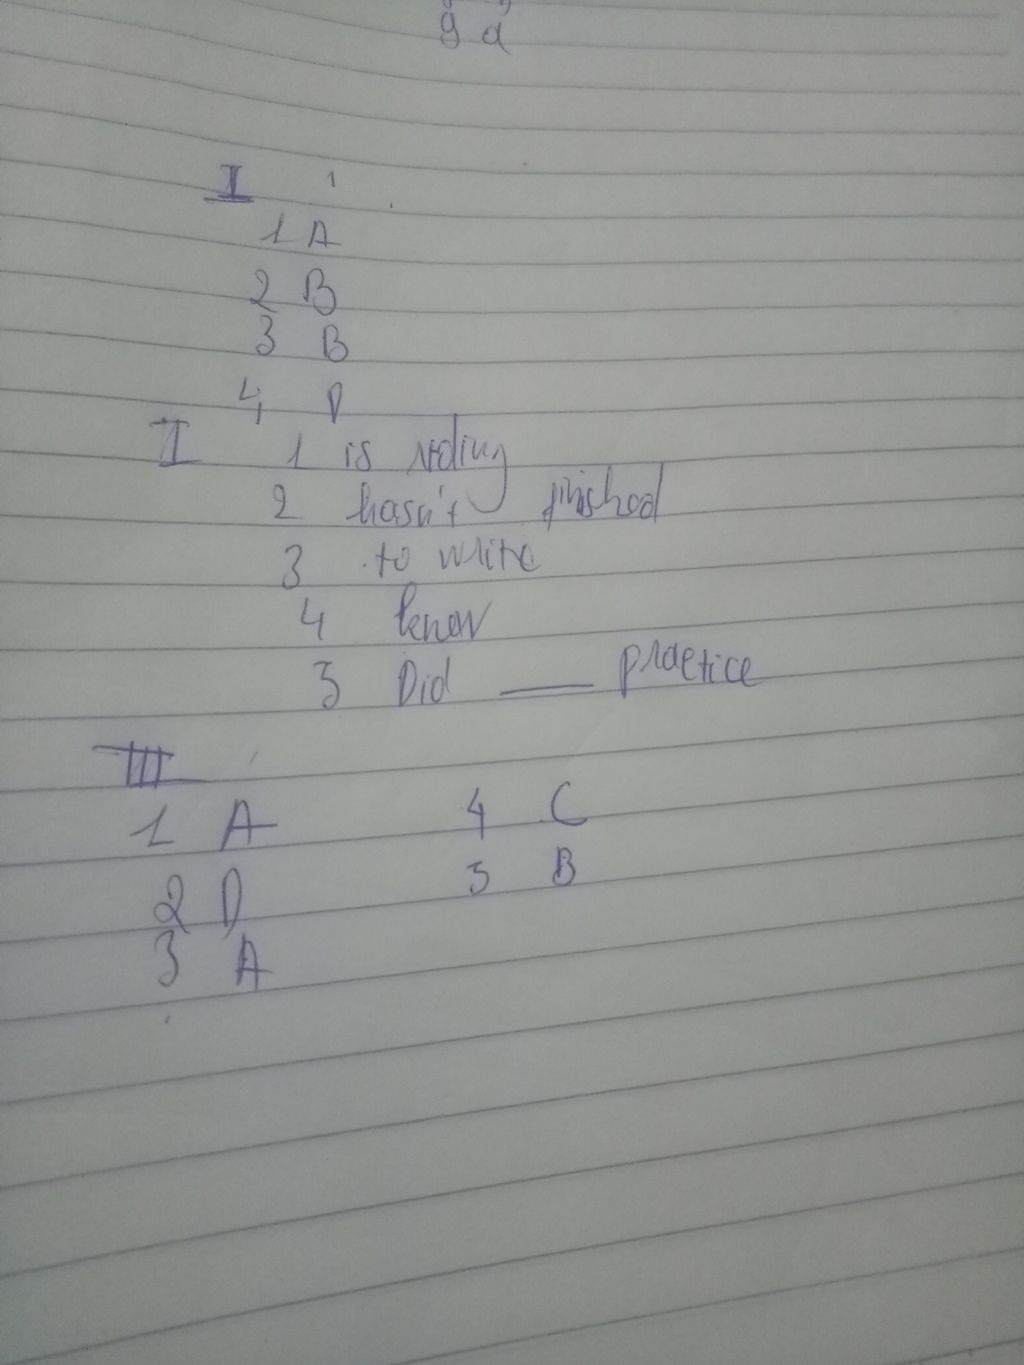 9 a
I
1 A
2 B
3 B
4 D
II 1 is riding
2 hasn't finished
3 to write
4 know
5 Did ___ practice
III
1 A 4 C
2 D 5 B
3 A